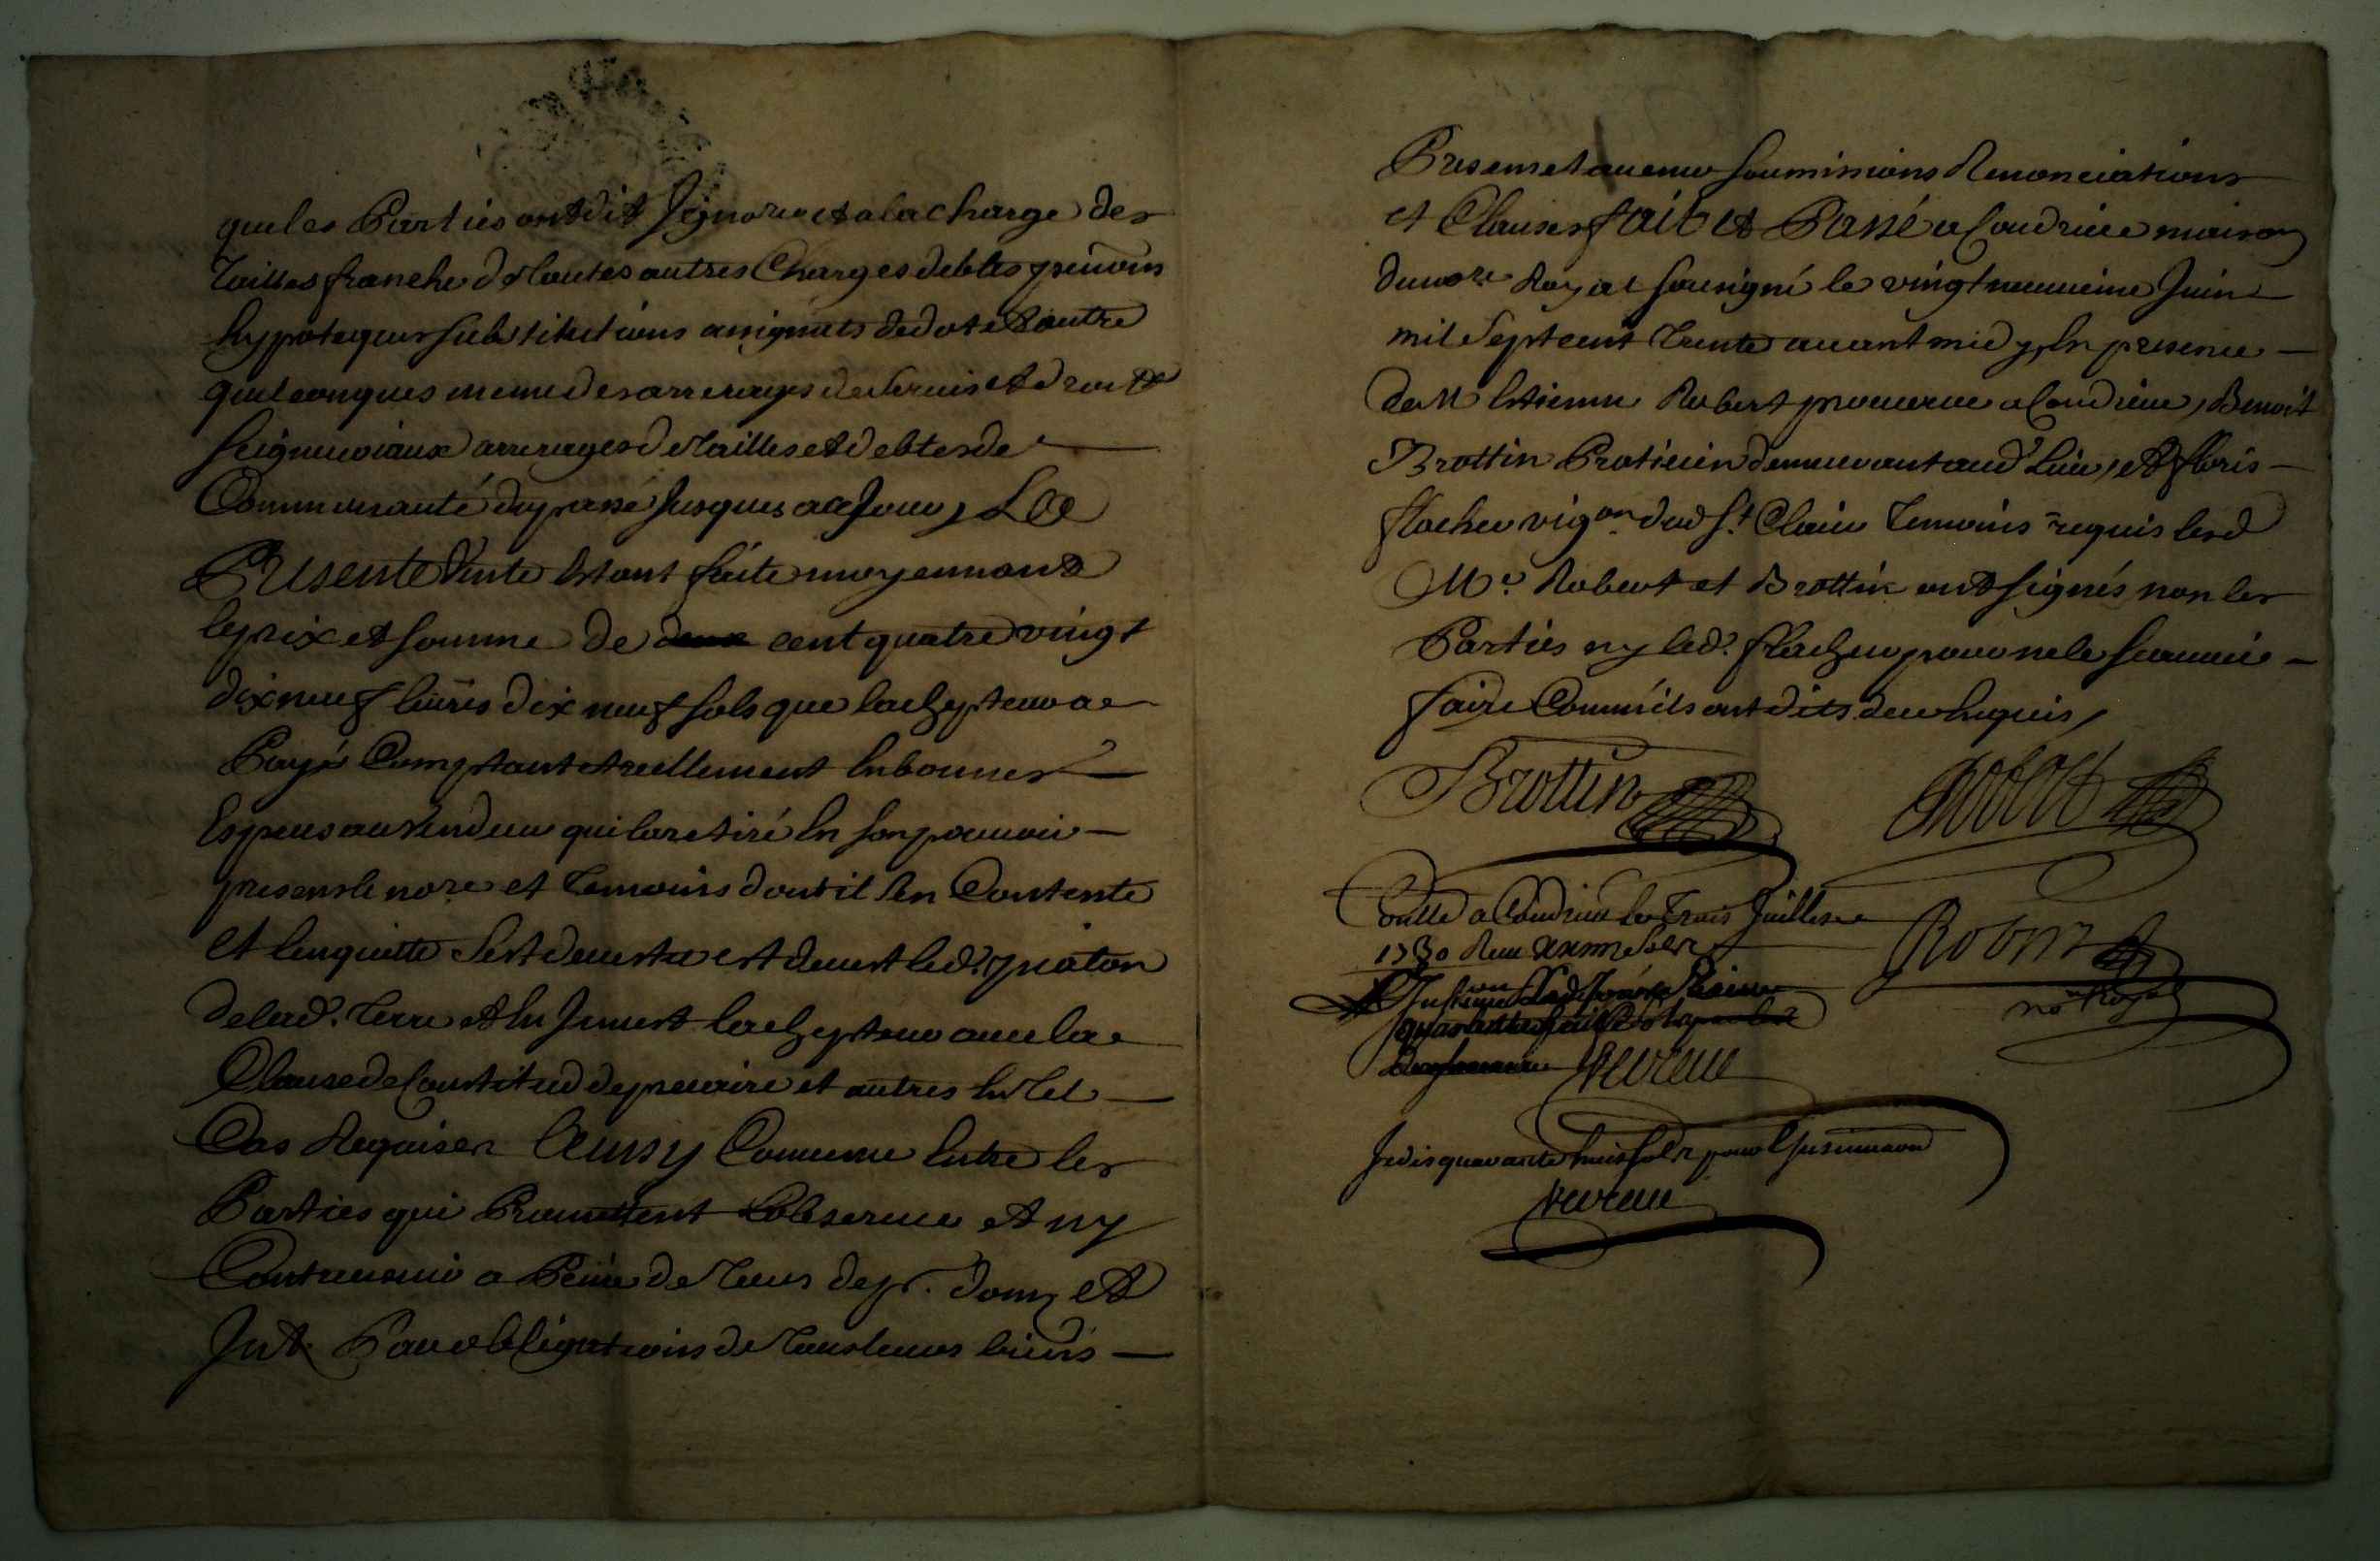 que les Parties ont dit Ignorer et a la charge des
Tailles franche de toutes autres Charges debtes pensions
hypoteques substitutions assignats de dote & autre
quelconques meme des arrerages de servis et droits
seigneuriaux arrerages de tailles et debtes de
Communauté du passé jusques a ce Jour, La
Presente Vente Estant faite moyennant
le prix et somme de cent quatre vingt
dix neuf livres dix neuf sols que lachepteur a
Payé Comptant et reellement En bonnes
Especes au vendeur qui la retiré En son pouvoir
presens le no.re et temoins dont il sen Contente
Et lenquitte sest devestu et devest led.
de lad. terre et En Invest lachepteur avec la
Clause de Constitud de precaire et autres En tel
Cas Requises Ainsy Convenu Entre les
Parties qui Promettent Lobserver et ny
Contrevenir a Peine de tous dep. dom et
Int. Par obligations de tous leurs biens
Presens et avenir soumissions Renonciations
et Clauses fait et Passé a Condrieu maison
du no.re Royal sousigné le vingt neuvieme Juin
mil sept cent Trente avant midy, En presence
de M Estienne Robert procureur a Condrieu, Benoit
Brottin Praticien demeurant aud Lieu, et floris
flacher vig.on dud S.t Clair temoins requis lesd
M.r Robert et Brottin ont signés non les
Parties ny led. flacher pour ne le scavoir
faire Comm'ils ont dits de ce Enquis,
Brottin Robert
Conllé a Condrieu le Trois Juillet
1730 Reçu sols
Robert
no.re Royal
Devreux
Je dis quarante huit sols pour l'Insinuaon
Devreux